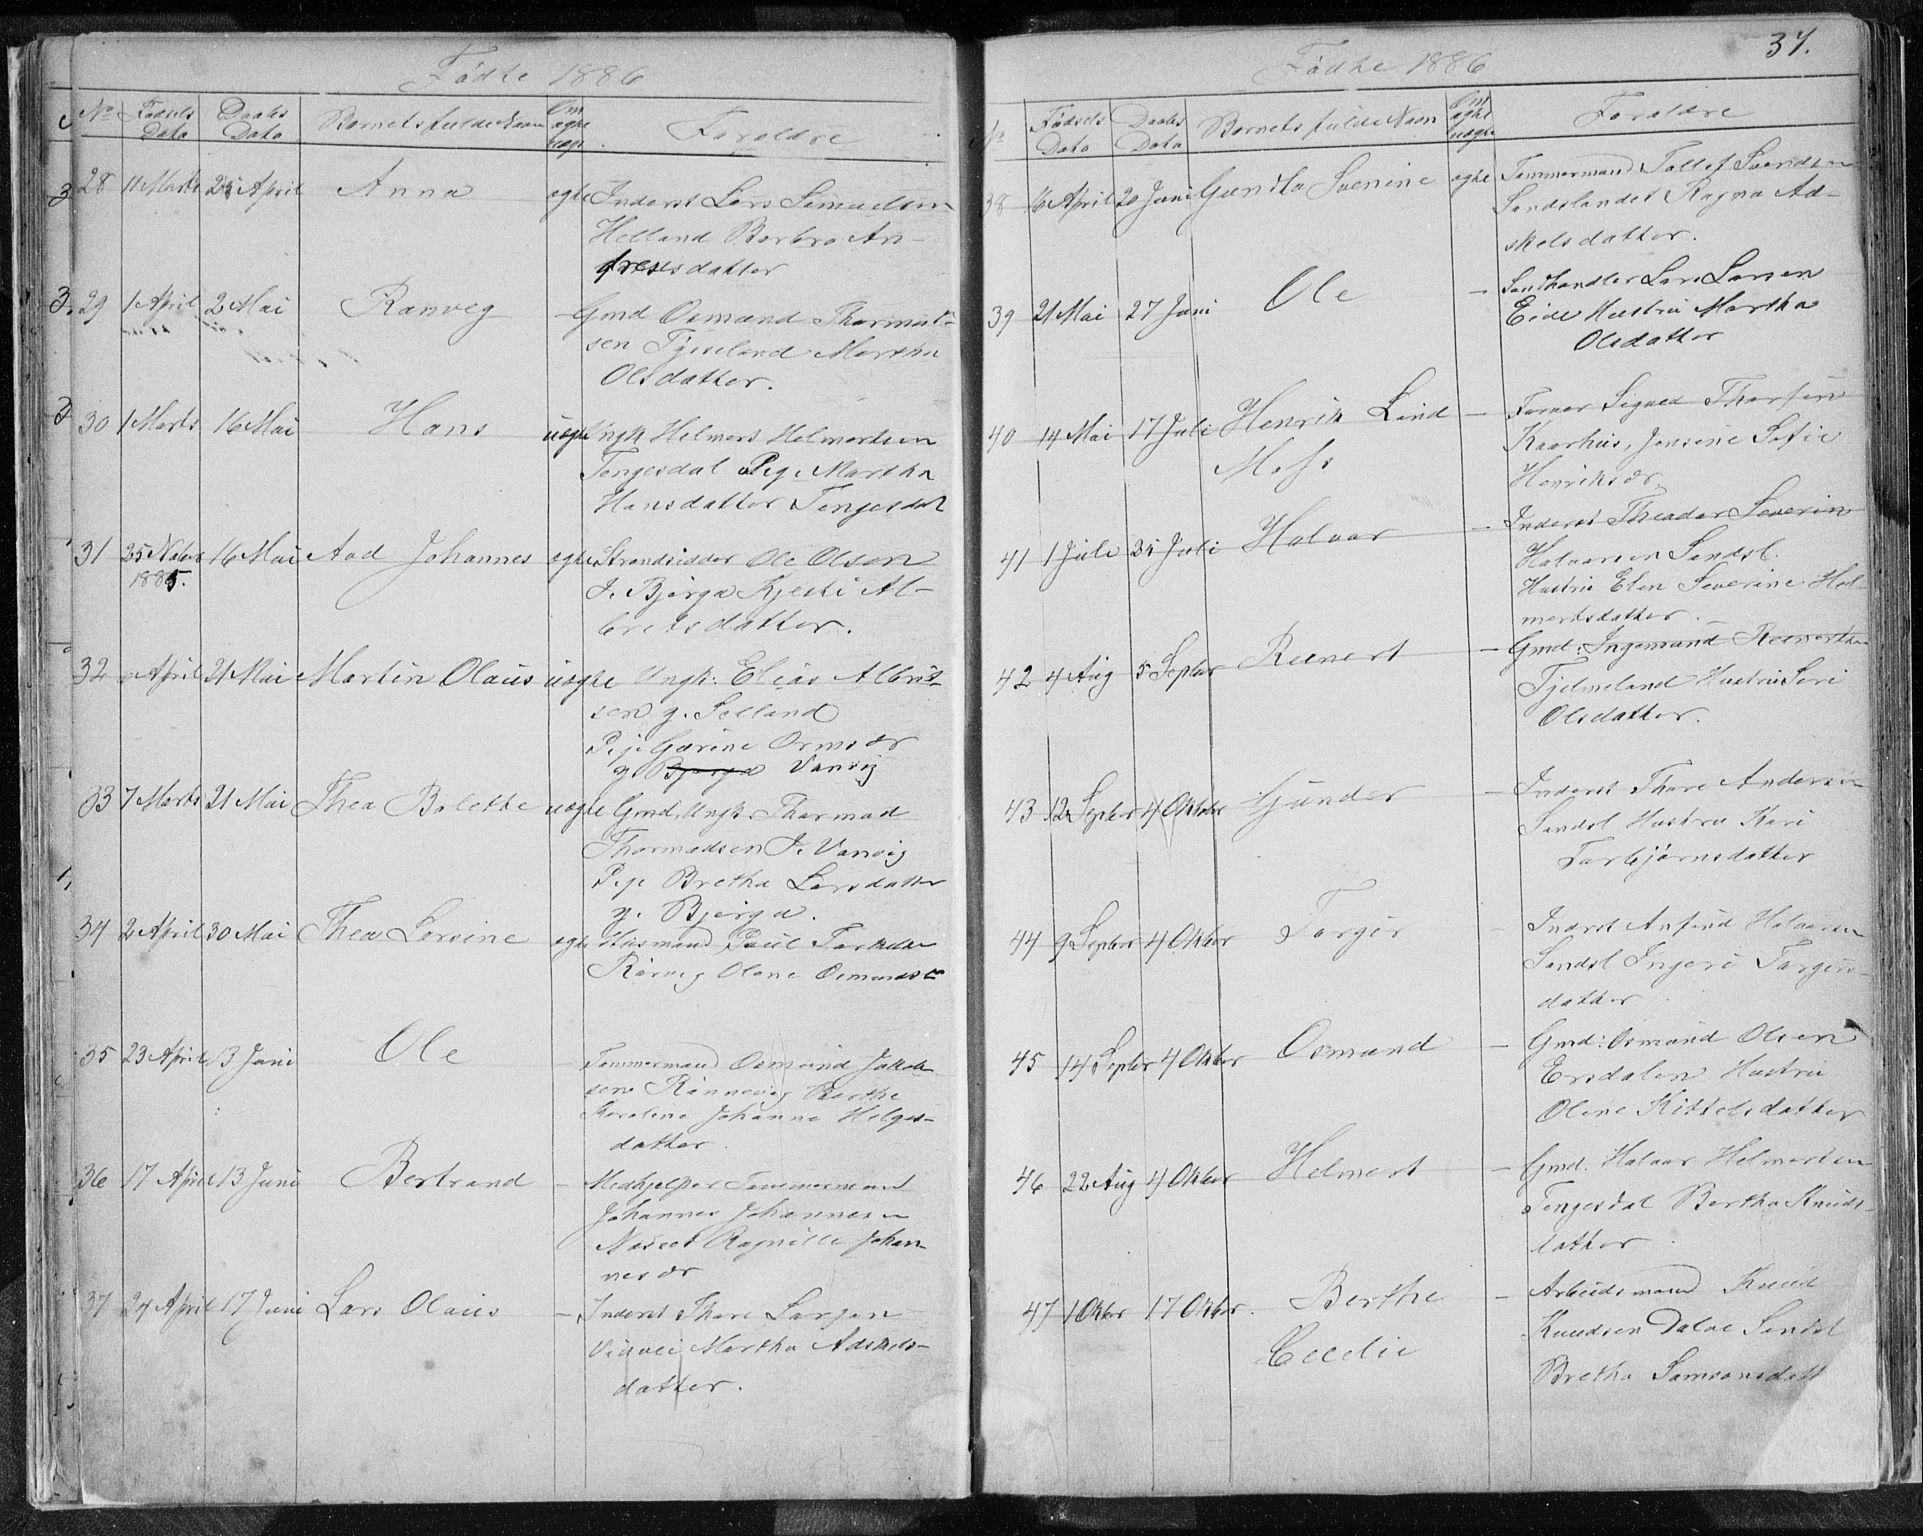 Fødte 1886
No Fødsels Data Daabs Data Barnets fulde Navn Om ægte uægt. Forældre
28 11 Marts 25 April Anna ægte Inderst Lars Simuelsen
Helland Berbro An-
fresdatter
29 1 April 2 Mai Ranveg - Gmd Osmund Thormod-
sen Tjeseland Martha
Olsdatter.
30 1 Marts 16 Mai Hans uægte Ungk Helmert Helmertsen
Tengesdal Pig. Martha
Hansdatter Tengesdal
31 25 Novbr 16 Mai Aad Johannes ægte Strandsidder Ole Olsen
1885. I. Bjerga Kjesti Al-
bretsdatter.
32 April 21 Mai Martin Olaus uægte Ungk: Elias Albrit-
sen g. Selland
Pige Gurine Ormsdr
g. Bjerga Vanvig
33 7 Marts 21 Mai Thea Bolette uægte Gmd. Ungk. Thormod
Thormodsen I. Vanvig
Pige Bretha Larsdatter
g. Bjerga.
34 2 April 30 Mai Thea Lovine ægte Husmand Poul Torkelsen
Rørveg Olene Osmundsdr
35 23 April 13 Juni Ole - Tømmermand Osmund Jakob-
sen Rønnevig Berthe
Karoline Johanne Helges-
datter.
36 17 April 13 Juni Bertrand - Medhjelper Tømmermand
Johannes Johannesen
Næsset Ragnille Johan-
nesdr
37 24 April 17 Juni Lars Olaus - Inderst Thore Larsen
Martha Adskels-
datter.
37.
Fødte 1886
No Fødsels Data Daabs Data Barnets fulde Navn Om ægte uægte Forældre
38 16 April 20 Juni Gunda Svenine ægte Tømmermand Tollef Svendsen
Sandslandet Ragna Ad-
skelsdatter.
39 21 Mai 27 Juni Ole - Landhandler Lars Larsen
Eide Hustru Martha
Olsdatter
40 14 Mai 17 Juli Henrik Lind - Farver Sigvald Thorsen
Moss Kaarhus, Jensine Sofie
Henriksdr.
41 1 Juli 25 Juli Halvor - Inderst Theodor Severin
Halvorsen Sandsl.
Hustru Elen Severine Hel-
mertsdatter.
42 4 Aug 5 Septbr Reinert - Gmd: Ingemund Reinertsen
Tjelmeland Hustru Siri
Olsdatter.
43 12 Septbr 4 Oktober Gunder - Inderst Thore Andersen
Sandsl Hustru Kari
Torbjørnsdatter
44 9 Septbr 4 Oktbr Torger - Inderst Anfind Halvorsen
Sandsl Ingeri Torgers-
datter.
45 14 Septbr 4 Oktbr Osmund - Gmd: Osmund Olsen
Ersdalen Hustru
Olene Kittelsdatter
46 22 Aug 4 Oktbr Helmert - Gmd. Halvor Helmertsen
Tengesdal Bertha Knuds-
datter
47 1 Oktbr 17 Oktbr. Berthe - Arbeidsmand Knud
Cecelie Knudsen Dalve Sandsl
Bretha Samsonsdatt